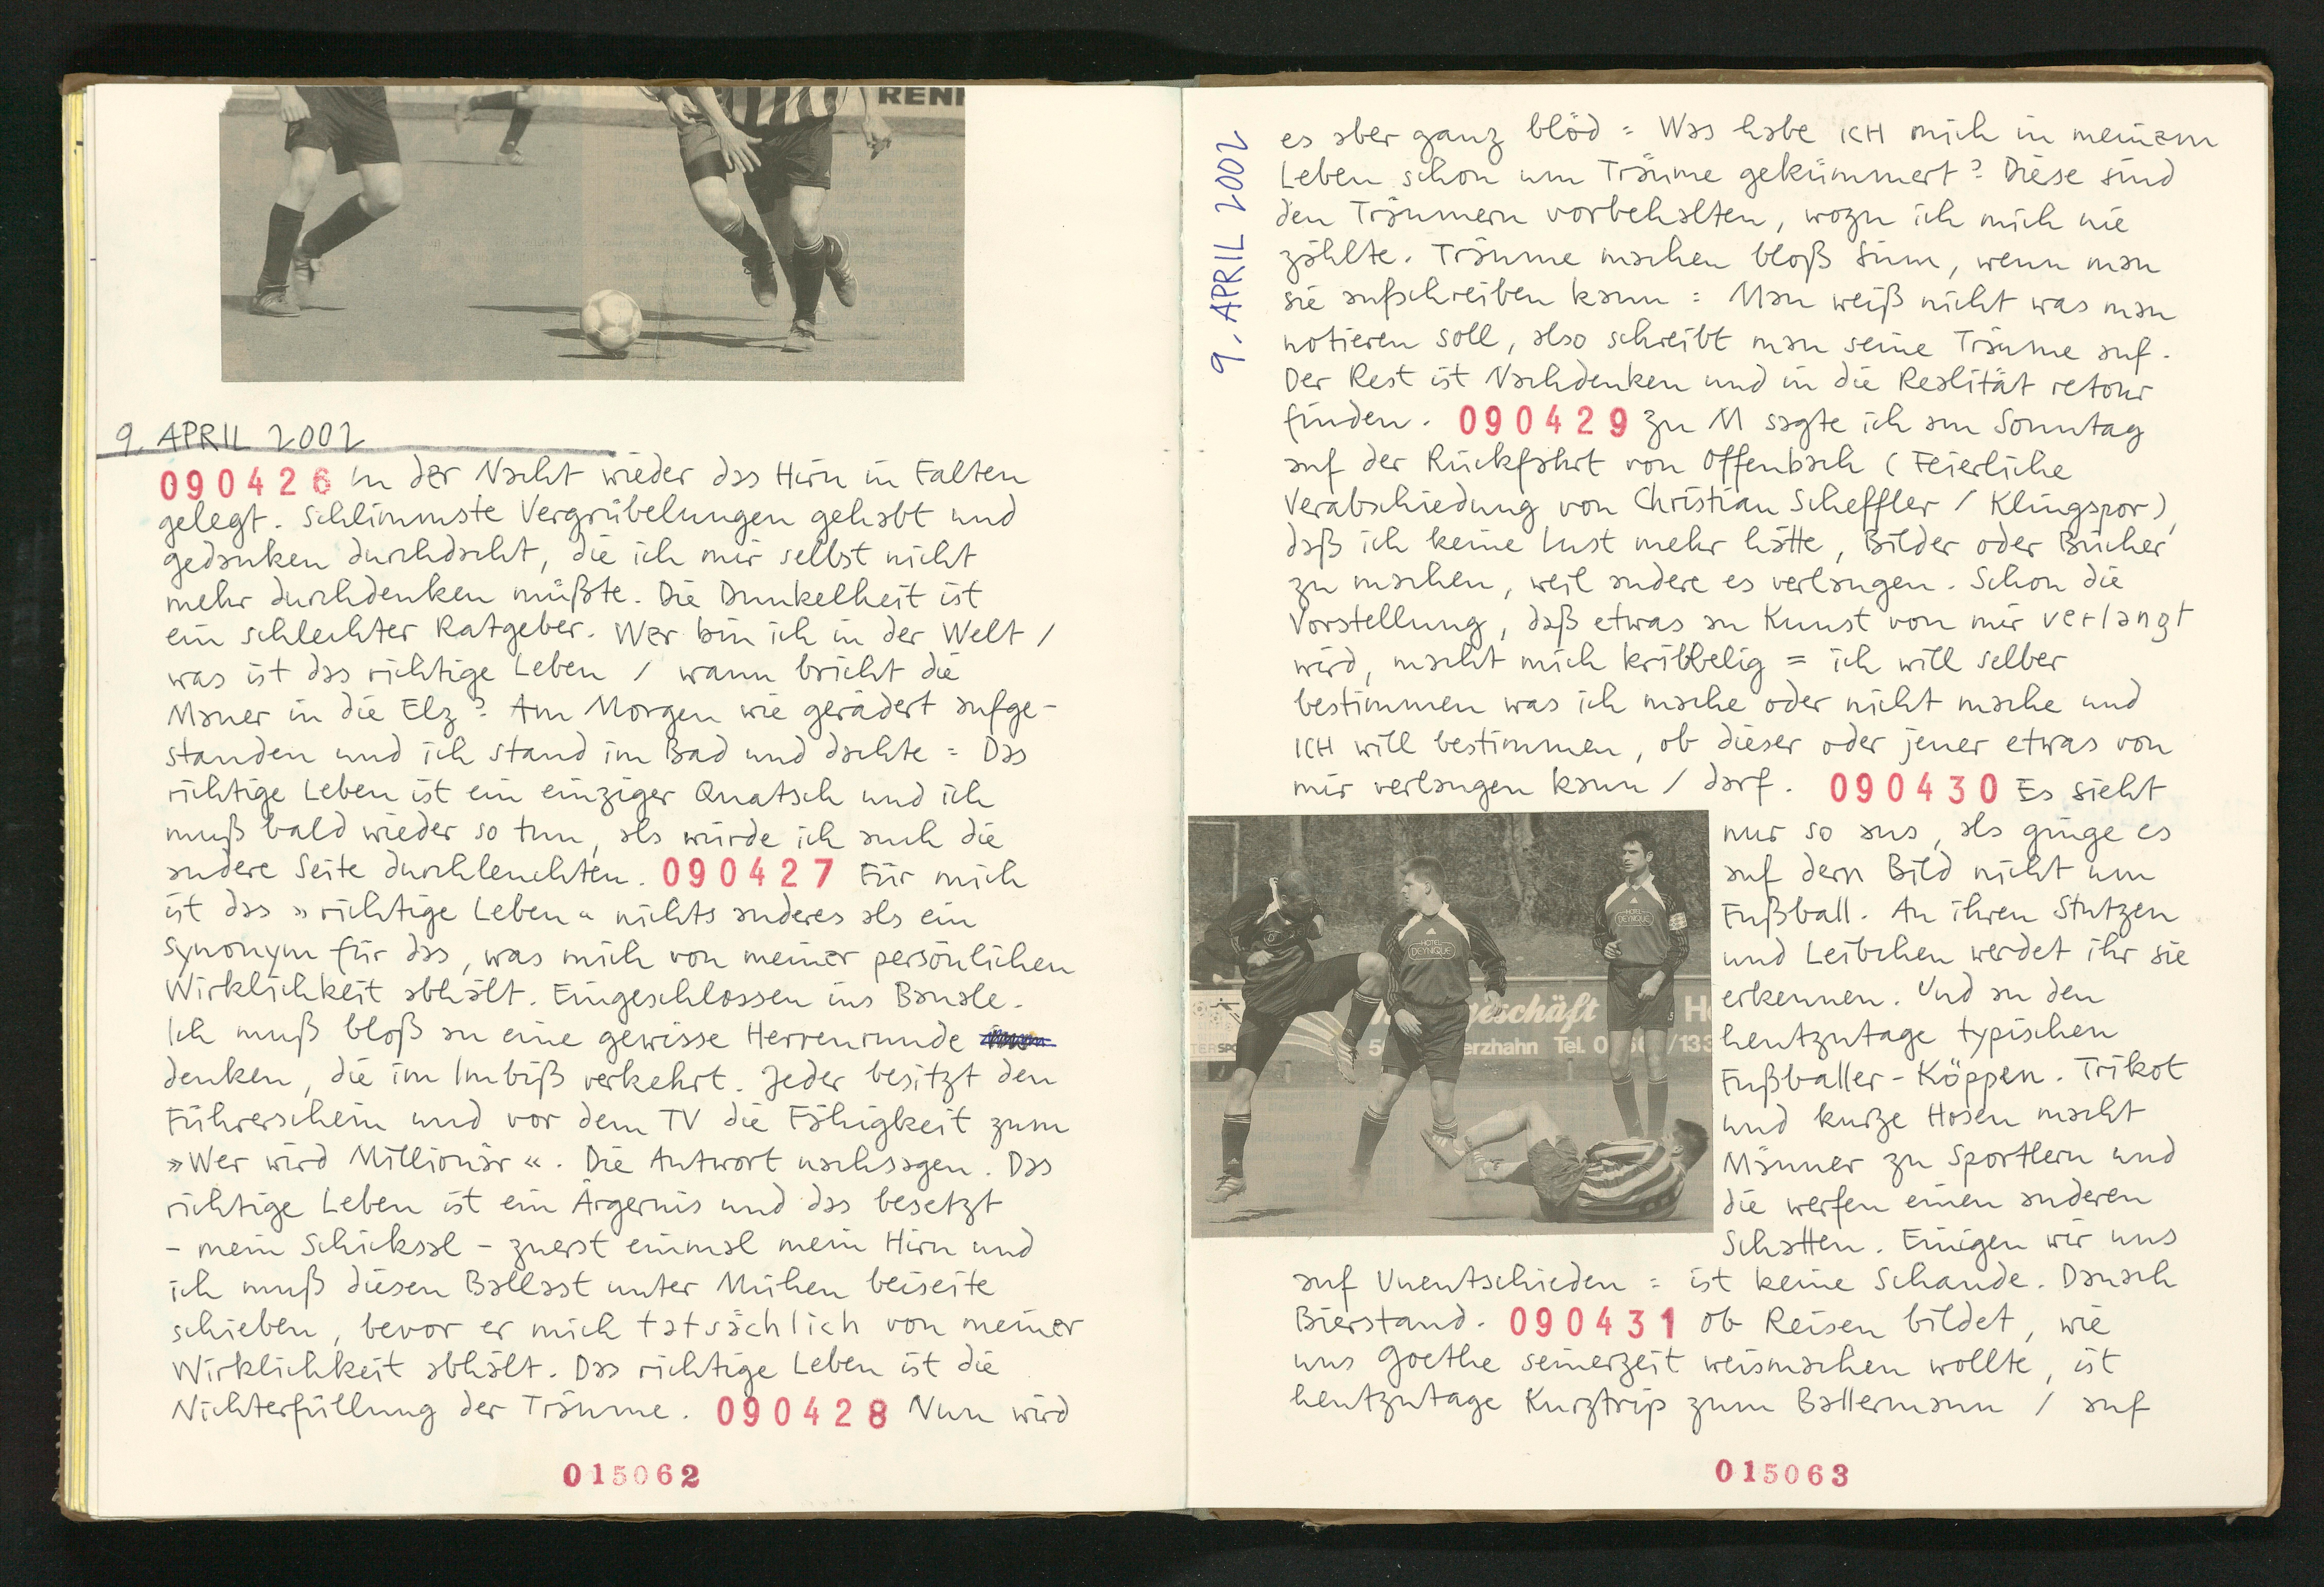 RENN
9. APRIL 2002
090426 In der Nacht wieder das Hirn in Falten
gelegt. Schlimmste Vergrübelungen gehabt und
gedanken durchdacht, die ich mir selbst nicht
mehr durchdenken müßte. Die Dunkelheit ist
ein schlechter Ratgeber. Wer bin ich in der Welt /
was ist das richtige Leben / wann bricht die
Mauer in die Elz? Am Morgen wie gerädert aufge-
standen und ich stand im Bad und dachte = Das
richtige Leben ist ein einziger Quatsch und ich
muß bald wieder so tun, als würde ich auch die
andere Seite durchleuchten. 090427 Für mich
ist das »richtige Leben« nichts anderes als ein
Synonym für das, was mich von meiner persönlichen
Wirklichkeit abhält. Eingeschlossen ins Banale.
Ich muß bloß an eine gewisse Herrenrunde
denken, die im Imbiß verkehrt. Jeder besitzt den
Führerschein und vor dem TV die Fähigkeit zum
»Wer wird Millionär«. Die Antwort nachsagen. Das
richtige Leben ist ein Ärgernis und das besetzt
- mein Schicksal - zuerst einmal mein Hirn und
ich muß diesen Ballast unter Mühen beiseite
schieben, bevor er mich tatsächlich von meiner
Wirklichkeit abhält. Das richtige Leben ist die
Nichterfüllung der Träume. 090428 Nun wird
015062
9. APRIL 2002
es aber ganz blöd = Was habe ICH mich in meinem
Leben schon um Träume gekümmert? Diese sind
den Träumern vorbehalten, wozu ich mich nie
zählte. Träume machen bloß Sinn, wenn man
sie aufschreiben kann = Man weiß nicht was man
notieren soll, also schreibt man seine Träume auf.
Der Rest ist Nachdenken und in die Realität retour
finden. 090429 Zu M sagte ich am Sonntag
auf der Rückfahrt von Offenbach (Feierliche
Verabschiedung von Christian Scheffler / Klingspor),
daß ich keine Lust mehr hätte, Bilder oder Bücher
zu machen, weil andere es verlangen. Schon die
Vorstellung, daß etwas an Kunst von mir verlangt
wird, macht mich kribbelig = ich will selber
bestimmen was ich mache oder nicht mache und
ICH will bestimmen, ob dieser oder jener etwas von
mir verlangen kann / darf. 090430 Es sieht
nur so aus, als ginge es
auf dem Bild nicht um
Fußball. An ihren Stutzen
und Leibchen werdet ihr sie
erkennen. Und an den
heutzutage typischen
Fußballer-Köppen. Trikot
und kurze Hosen macht
Männer zu Sportlern und
die werfen einen anderen
Schatten. Einigen wir uns
HOTEL
DEYNIQUE
HOTEL
DEYNIQUE
geschäft
erzhahn Tel. 0
/133
auf Unentschieden = ist keine Schande. Danach
Bierstand. 090431 Ob Reisen bildet, wie
uns Goethe seinerzeit weismachen wollte, ist
heutzutage Kurztrip zum Ballermann / auf
015063